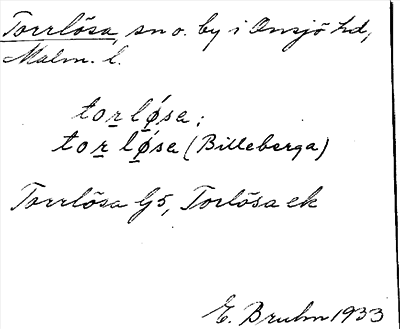 Torrlösa, sn o. by i Onsjö hd,
Malm. l.
torløsa;
torløsa (Billeberga)
Torrlösa G5, Torlösa ek
E. Bruhn 1933